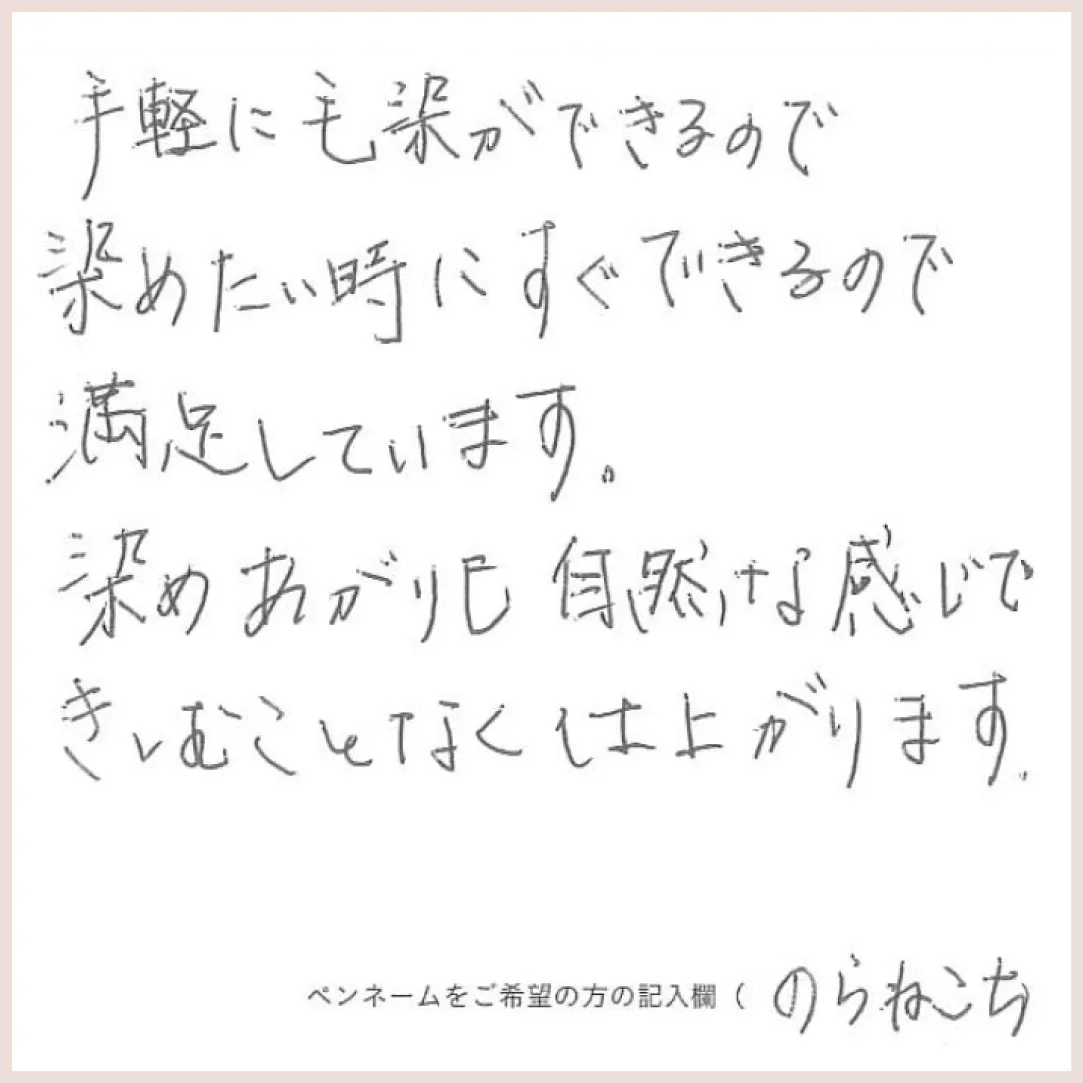 手軽に毛染ができるので
染めたい時にすぐできるので
満足しています。
染めあがりも自然な感じで
きしむことなく仕上がります。
ペンネームをご希望の方の記入欄 ( のらねこち